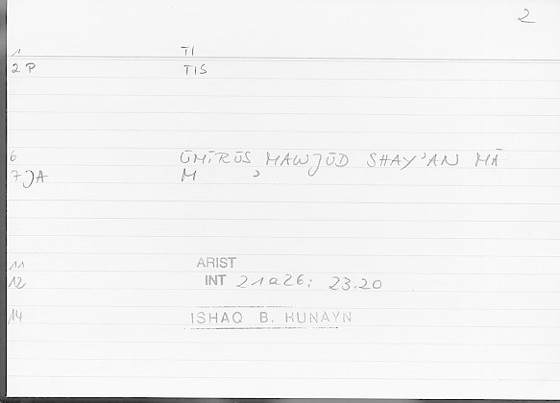 2
1 TI
2 P TIS
6 ŪMĪRŪS MAWJŪD SHAY'AN MĀ
7 JA M ʾ
11 ARIST
12 INT 21a26; 23.20
14 ISHAQ B. HUNAYN